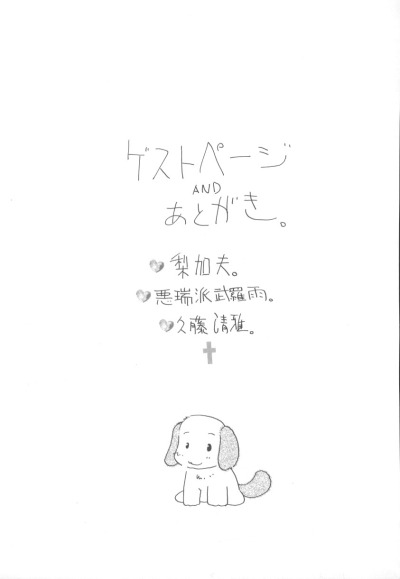 ゲストページ
AND
あとがき。
梨加夫。
悪瑞派武羅雨。
久藤清雅。